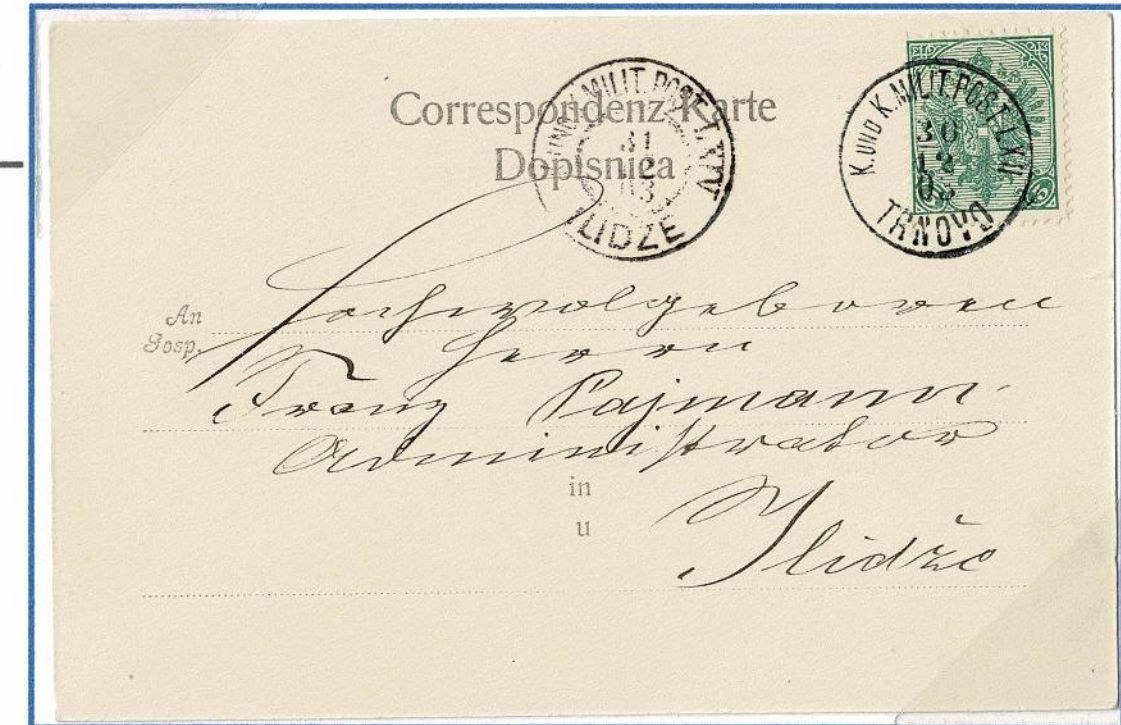 Correspondenz-Karte
Dopisnica
MILIT. POST
31
12
03
ILIDZE
K. UND K. MILIT. POST LXII
30
12
03
TRNOVO
An
Gosp.
Hochwolgeboren
Herrn
Franz Pajmann
Administrator
in
u
Ilidže